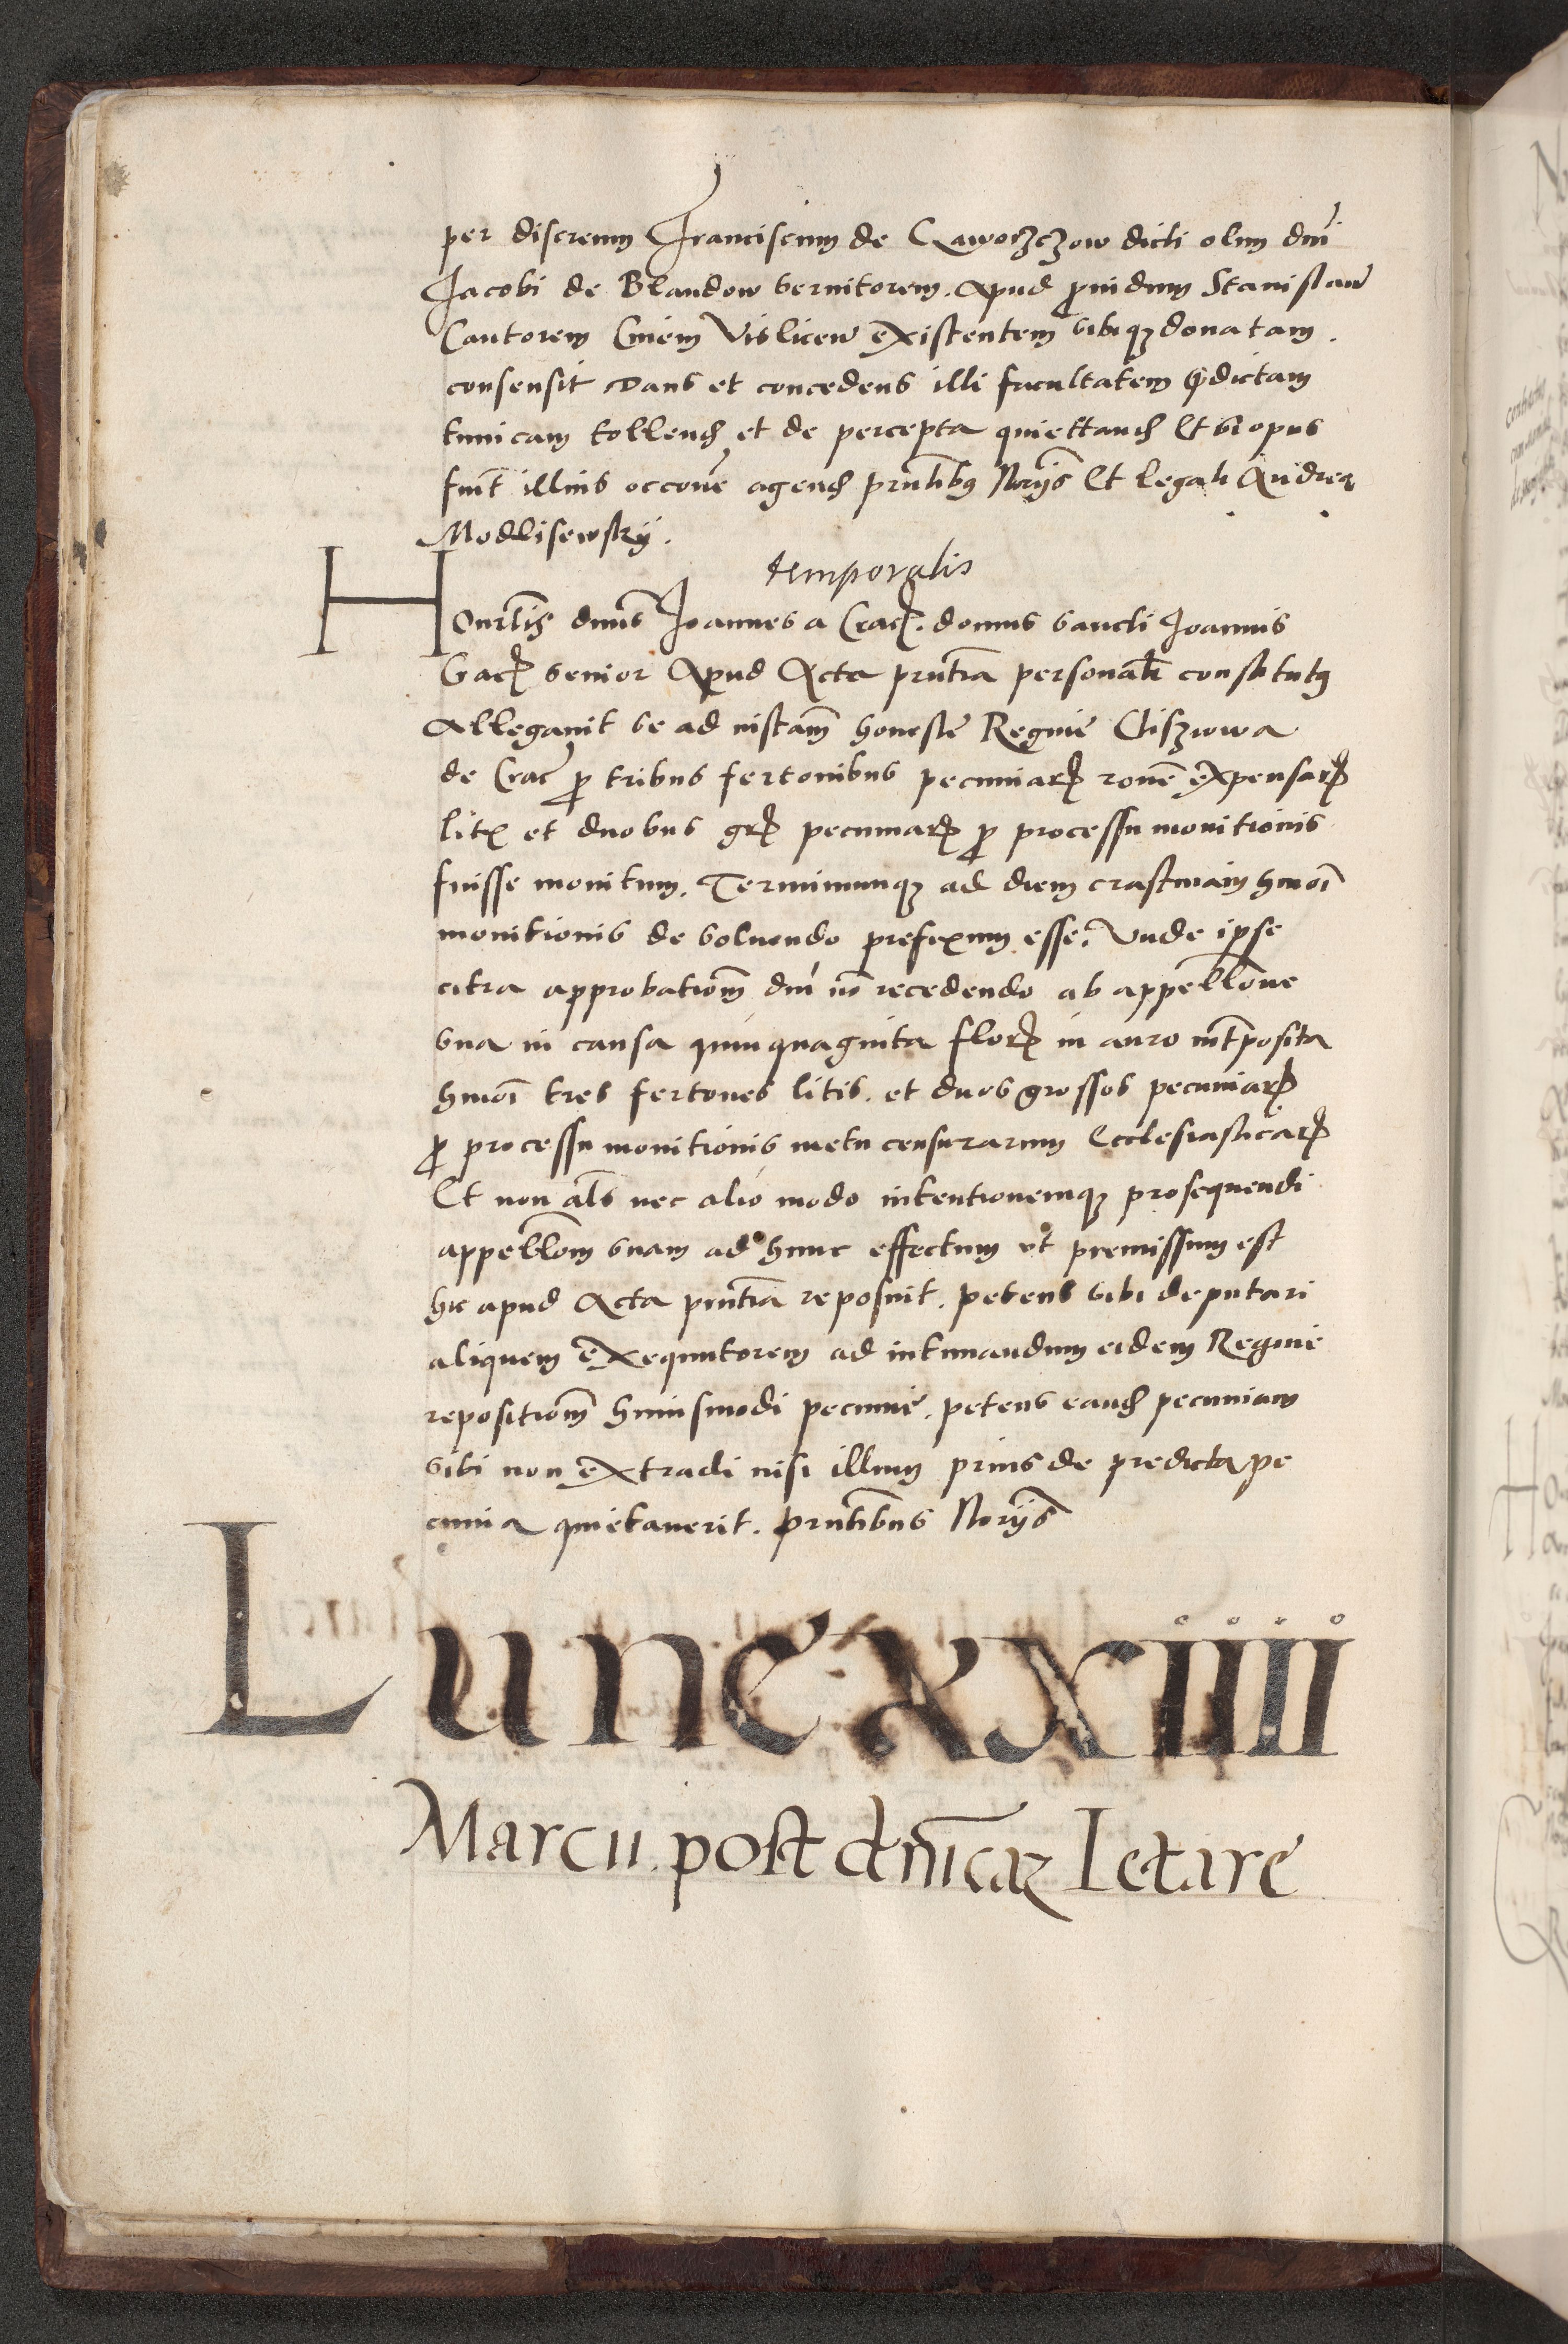 per discretum Franciscum de Rawoczczow dicti olim dnī
Jacobi de Blandow servitorem. Apud ꝓvidum Stanislaū
Cantorem Civem Visliceñ existentem sibiqꝫ donatam.
consensit Dans et concedens illi facultatem p̄dictam
tunicam tollenđ et de percepta quiettanđ Et si opus
fuīt illius occōne agenđ pn̄tibꝫ Norijs Et legali Andrea
Modlisewskij.
temporalis
Honrl̄is dnus Joannes a Crac. domus sancti Joannis
Crac senior Apud Acta pn̄tia personal̄r constitutꝫ
Allegavit se ad instam̄ honeste Regine Clisżowa
de Crac ꝓ tribus fertonibus pecuniaꝝ rōne expensaꝝ
litꝭ et duobus grꝭ pecuniaꝝ ꝓ processu monitionis
fuisse monitum. Terminumqꝫ ad diem crastinam hmōi
monitionis de solvendo prefixum esse. Unde ipse
citra approbatiom̄ dnī nō recedendo ab appell̄one
sua in causa quinquaginta floꝝ in auro int̄posita
hmōi tres fertones litis. et duos grossos pecuniaꝝ
ꝓ processu monitionis metu censurarum Ecclesiasticaꝝ
Et non al̄s nec alio modo intentionemqꝫ prosequendi
appell̄om suam ad hunc effectum ut premissum est
hic apud Acta pn̄tia reposuit. petens sibi deputari
aliquem exequutorem ad intimandum eidem Regine
repositiom̄ huiusmodi pecunie. petens eanđ pecuniam
sibi non extradi nisi illum prius de predicta pe
cunia quietaverit. pn̄tibus Norijs
Lune xxiiii
Marcii. post dn̄icaꝫ letare